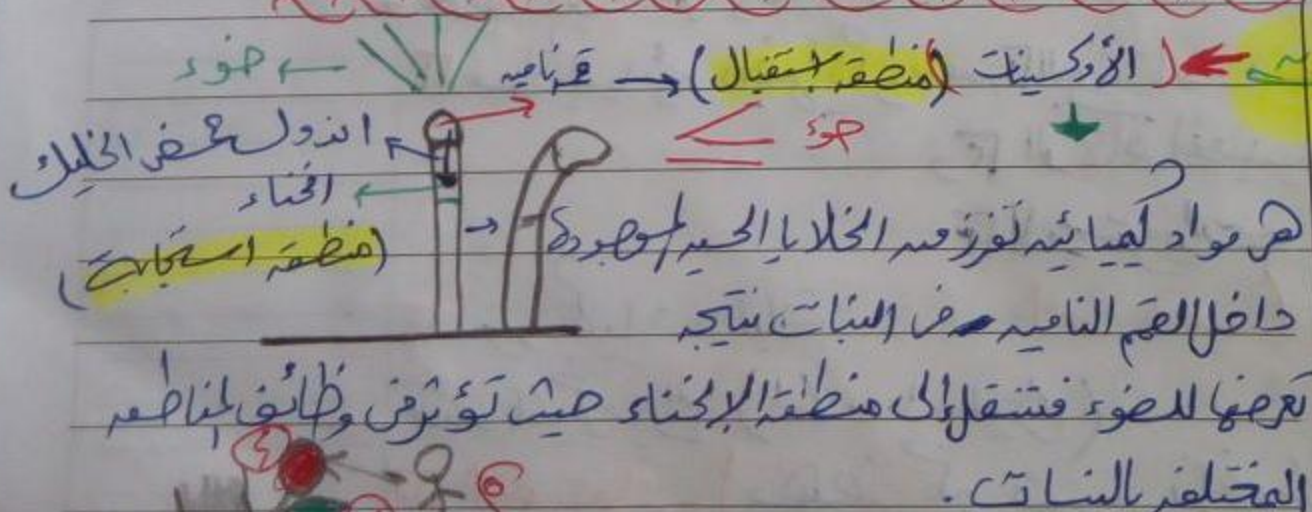 الأوكسينات (منطقة استقبال) → قمة نامية
ضوء
ضوء
اندول حمض الخليك
انحناء
(منطقة استجابة)
هى مواد كيميائية تفرز من الخلايا الحية الموجودة
داخل القمم النامية فى النبات نتيجة
تعرضها للضوء فتنتقل إلى منطقة الإنحناء حيث تؤثر فى وظائف المناطق
المختلفة بالنبات.